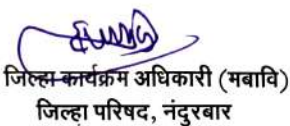 जिल्हा कार्यक्रम अधिकारी (मबावि)
जिल्हा परिषद, नंदुरबार